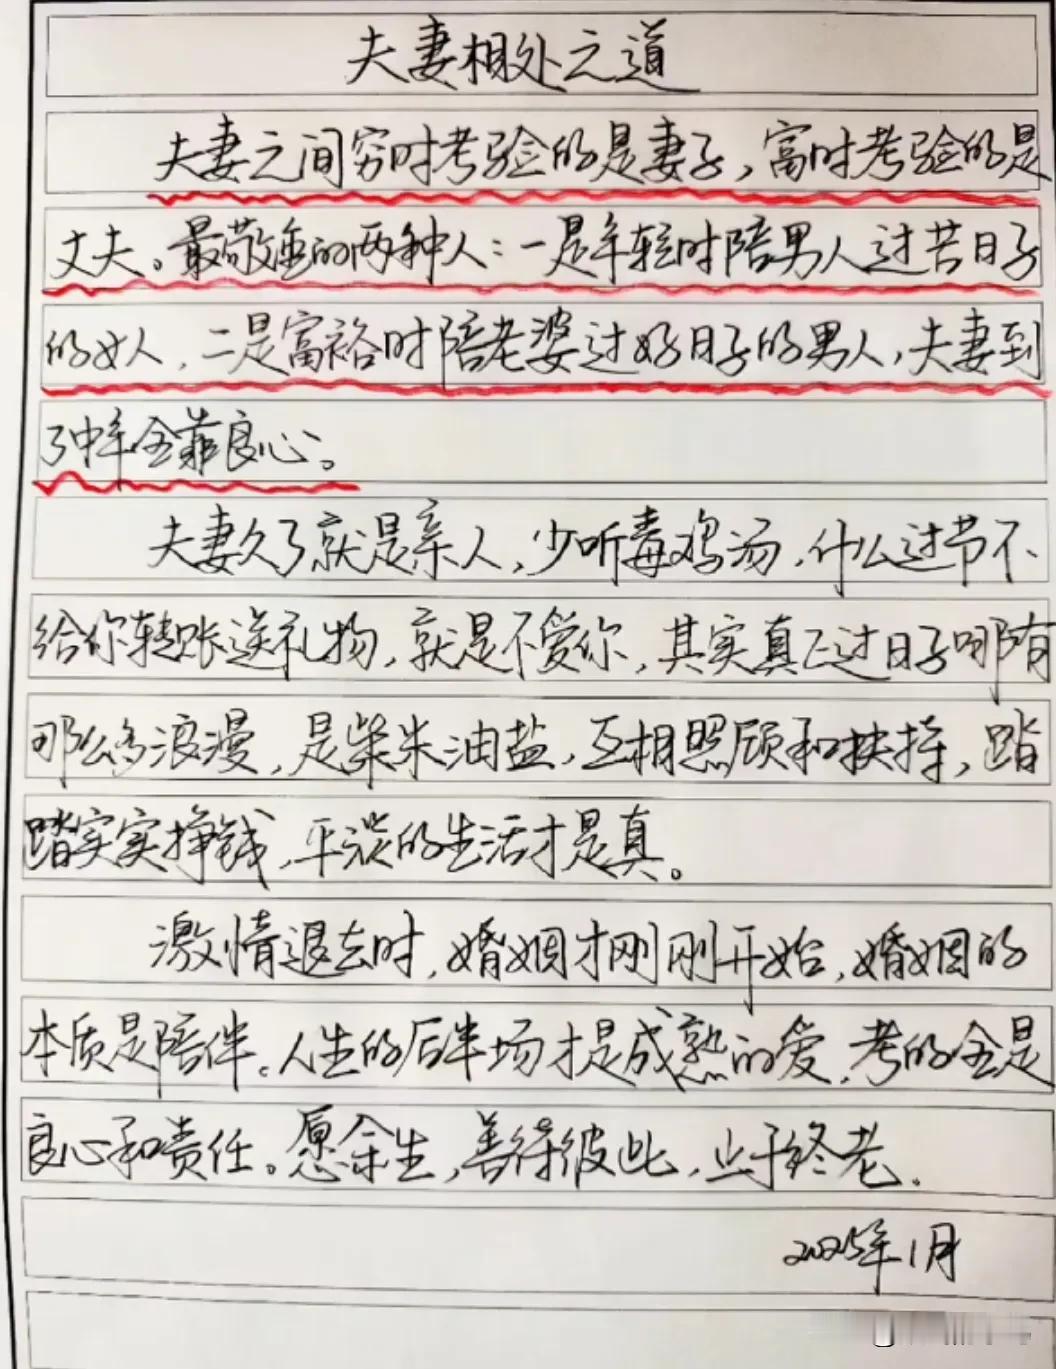 夫妻相处之道
夫妻之间穷时考验的是妻子，富时考验的是
丈夫。最敬重的两种人：一是年轻时陪男人过苦日子
的女人，二是富裕时陪老婆过好日子的男人，夫妻到
了中年全靠良心。
夫妻久了就是亲人，少听毒鸡汤，什么过节不
给你转账送礼物，就是不爱你，其实真正过日子哪有
那么多浪漫，是柴米油盐，互相照顾和扶持，踏
踏实实挣钱，平淡的生活才是真。
激情退去时，婚姻才刚刚开始，婚姻的
本质是陪伴。人生的后半场才是成熟的爱，考的全是
良心和责任。愿余生，善待彼此，止于终老．
2025年1月